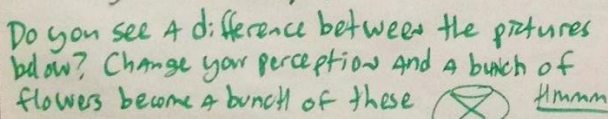 Do you see A difference between the pictures
below? Change your perception and A bunch of
flowers become A bunch of these Hmmm